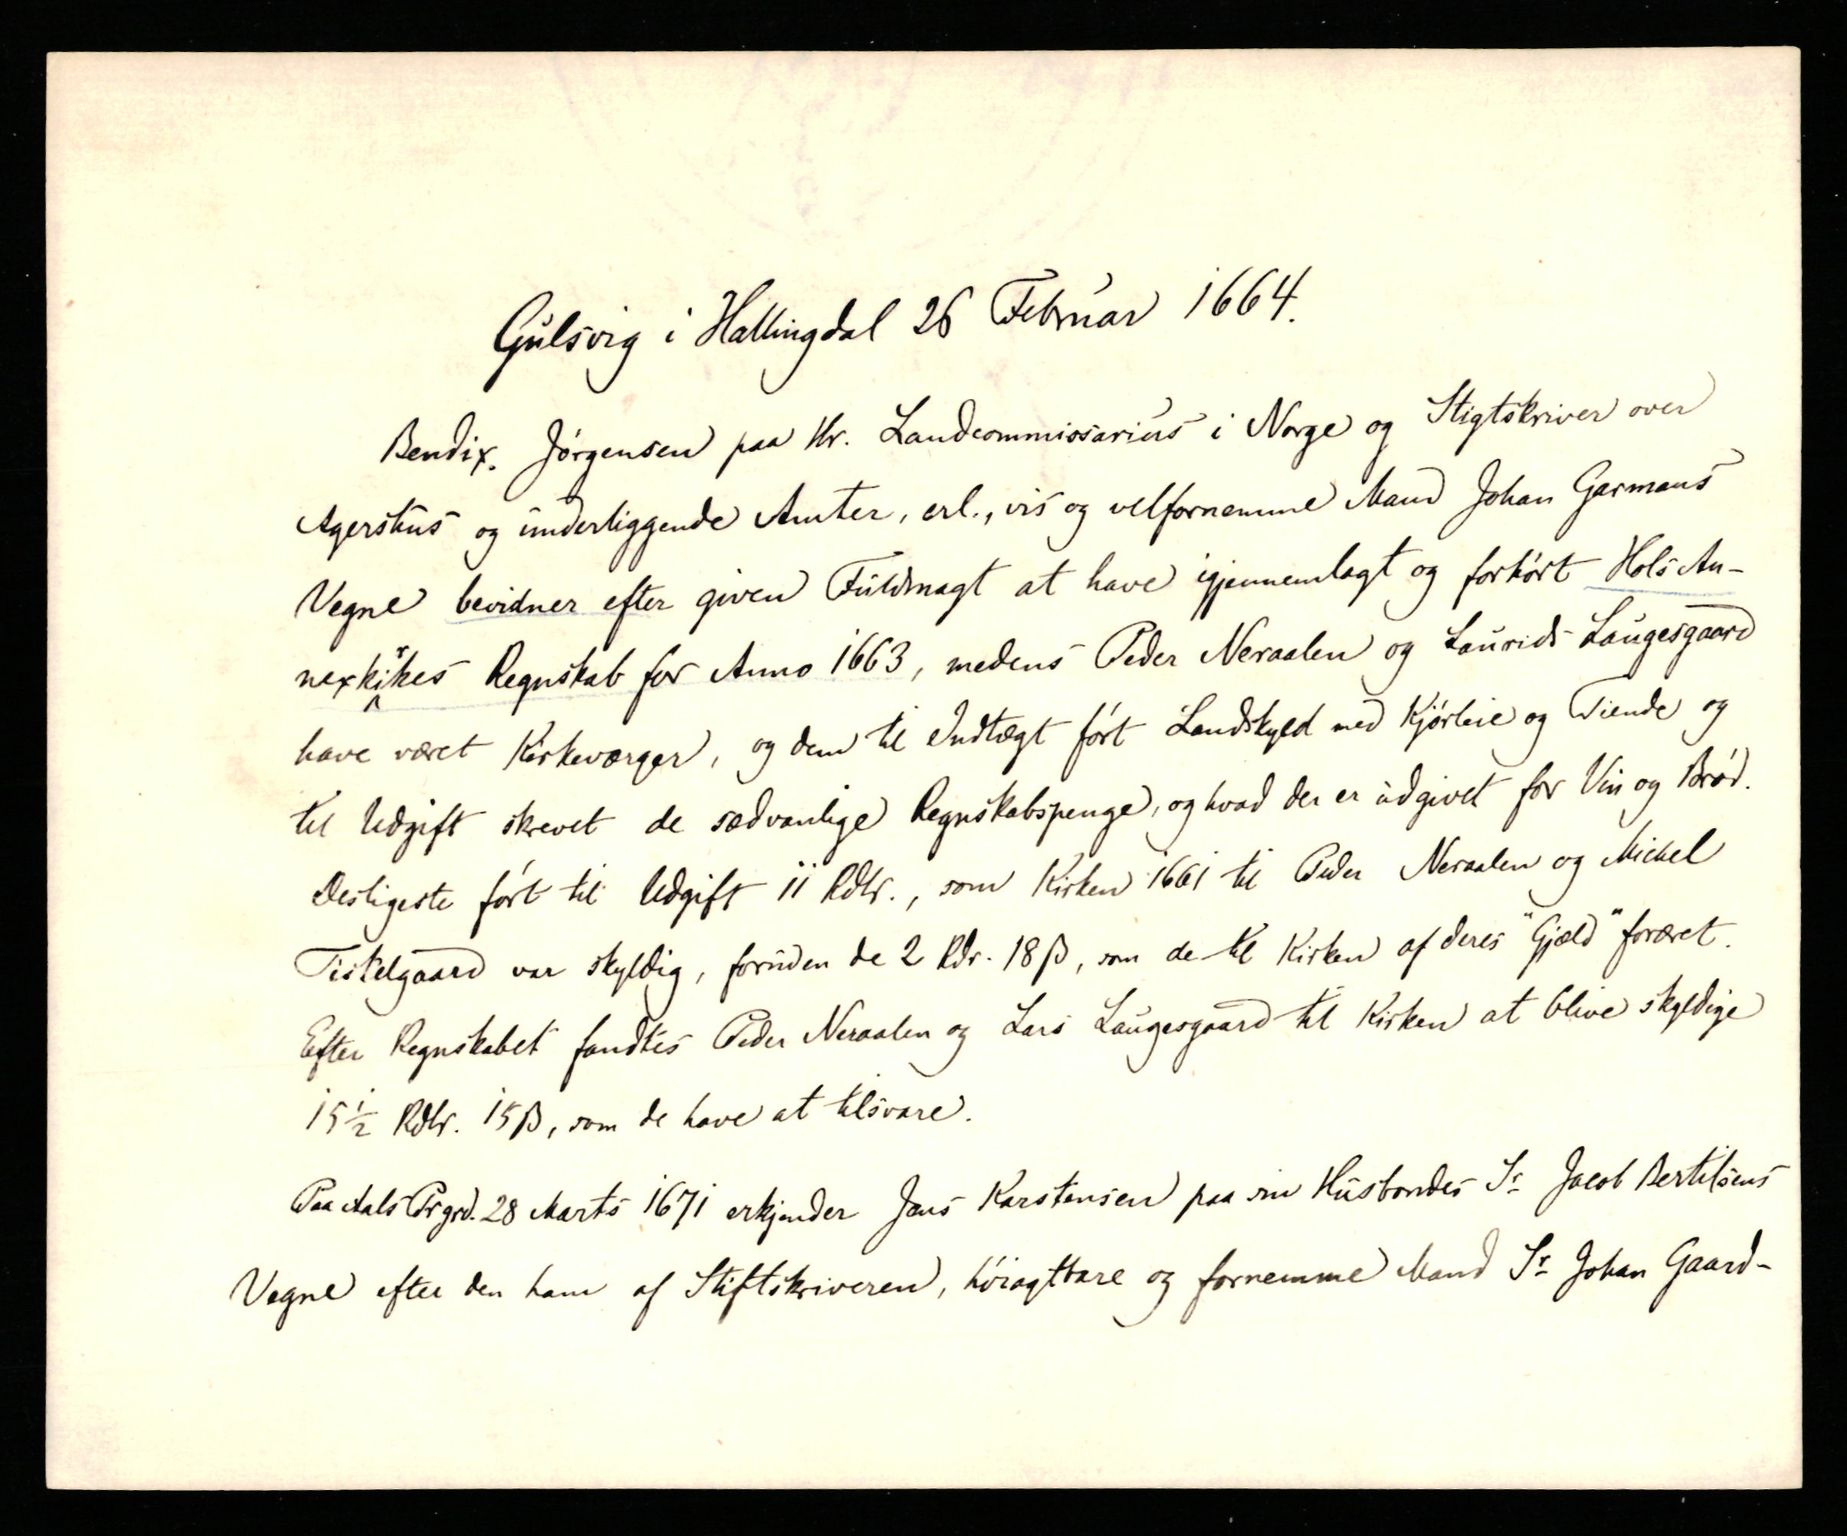 Gulsvig i Hallingdal 26 Februar 1664.
Bendix. Jørgensen paa Hr. Landcommissarius i Norge og Stigtskriver over
Agershus og underliggende Amter, erl., vis og velfornemme Mand Johan Garmans
Vegne bevidner efter given Fuldmagt at have igjennemlagt og forhørt Hols An-
nexkirkes Regnskab for Anno 1663, medens Peder Neraalen og Laurids Laugesgaard
have været Kirkeværger, og dem til Indtægt ført Landskyld med Kjørleie og Tiende og
til Udgift skrevet de sædvanlige Regnskabspenge, og hvad der er udgivet for Vin og Brød.
Desligeste ført til Udgift 11 Rdlr., som Kirken 1661 til Peder Neraalen og Michel
Tiskelgaard var skyldig, foruden de 2 Rdr. 18 β, som de til Kirken af deres "Gjæld" foræret.
Efter Regnskabet fandtes Peder Neraalen og Lars Laugesgaard til Kirken at blive skyldige
15 1/2 Rdlr. 15 β, som de have at tilsvare.
Paa Aals Prgrd. 28 Marts 1671 erkjender Jens Karstensen paa sin Husbondes Sr Jacob Bertelsens
Vegne efter den ham af Stiftskriveren, høiagtbare og fornemme Mand Sr Johan Gaard-